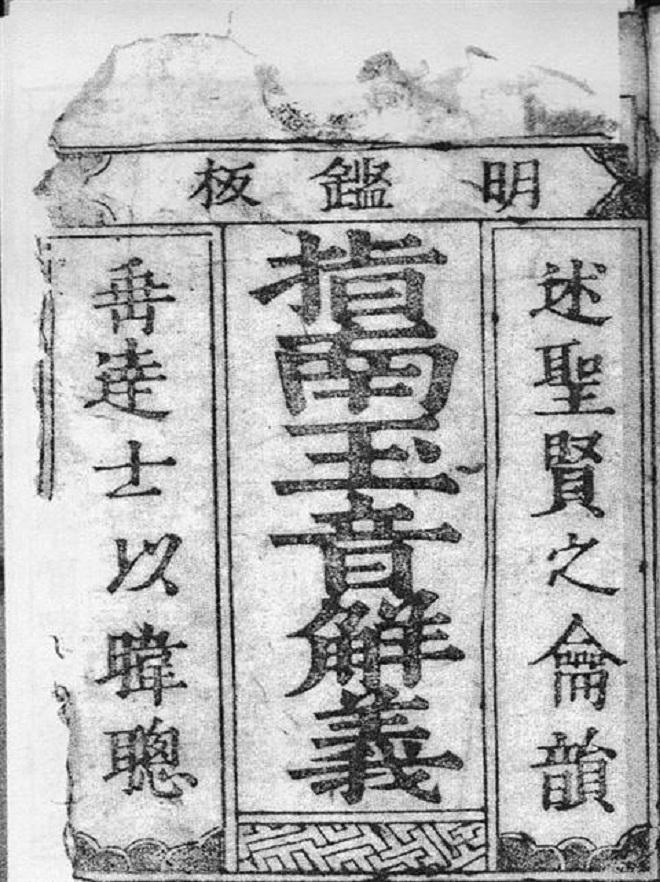 明鑑板
述聖賢之侖韻
指南玉音解義
垂逹士以暐聰